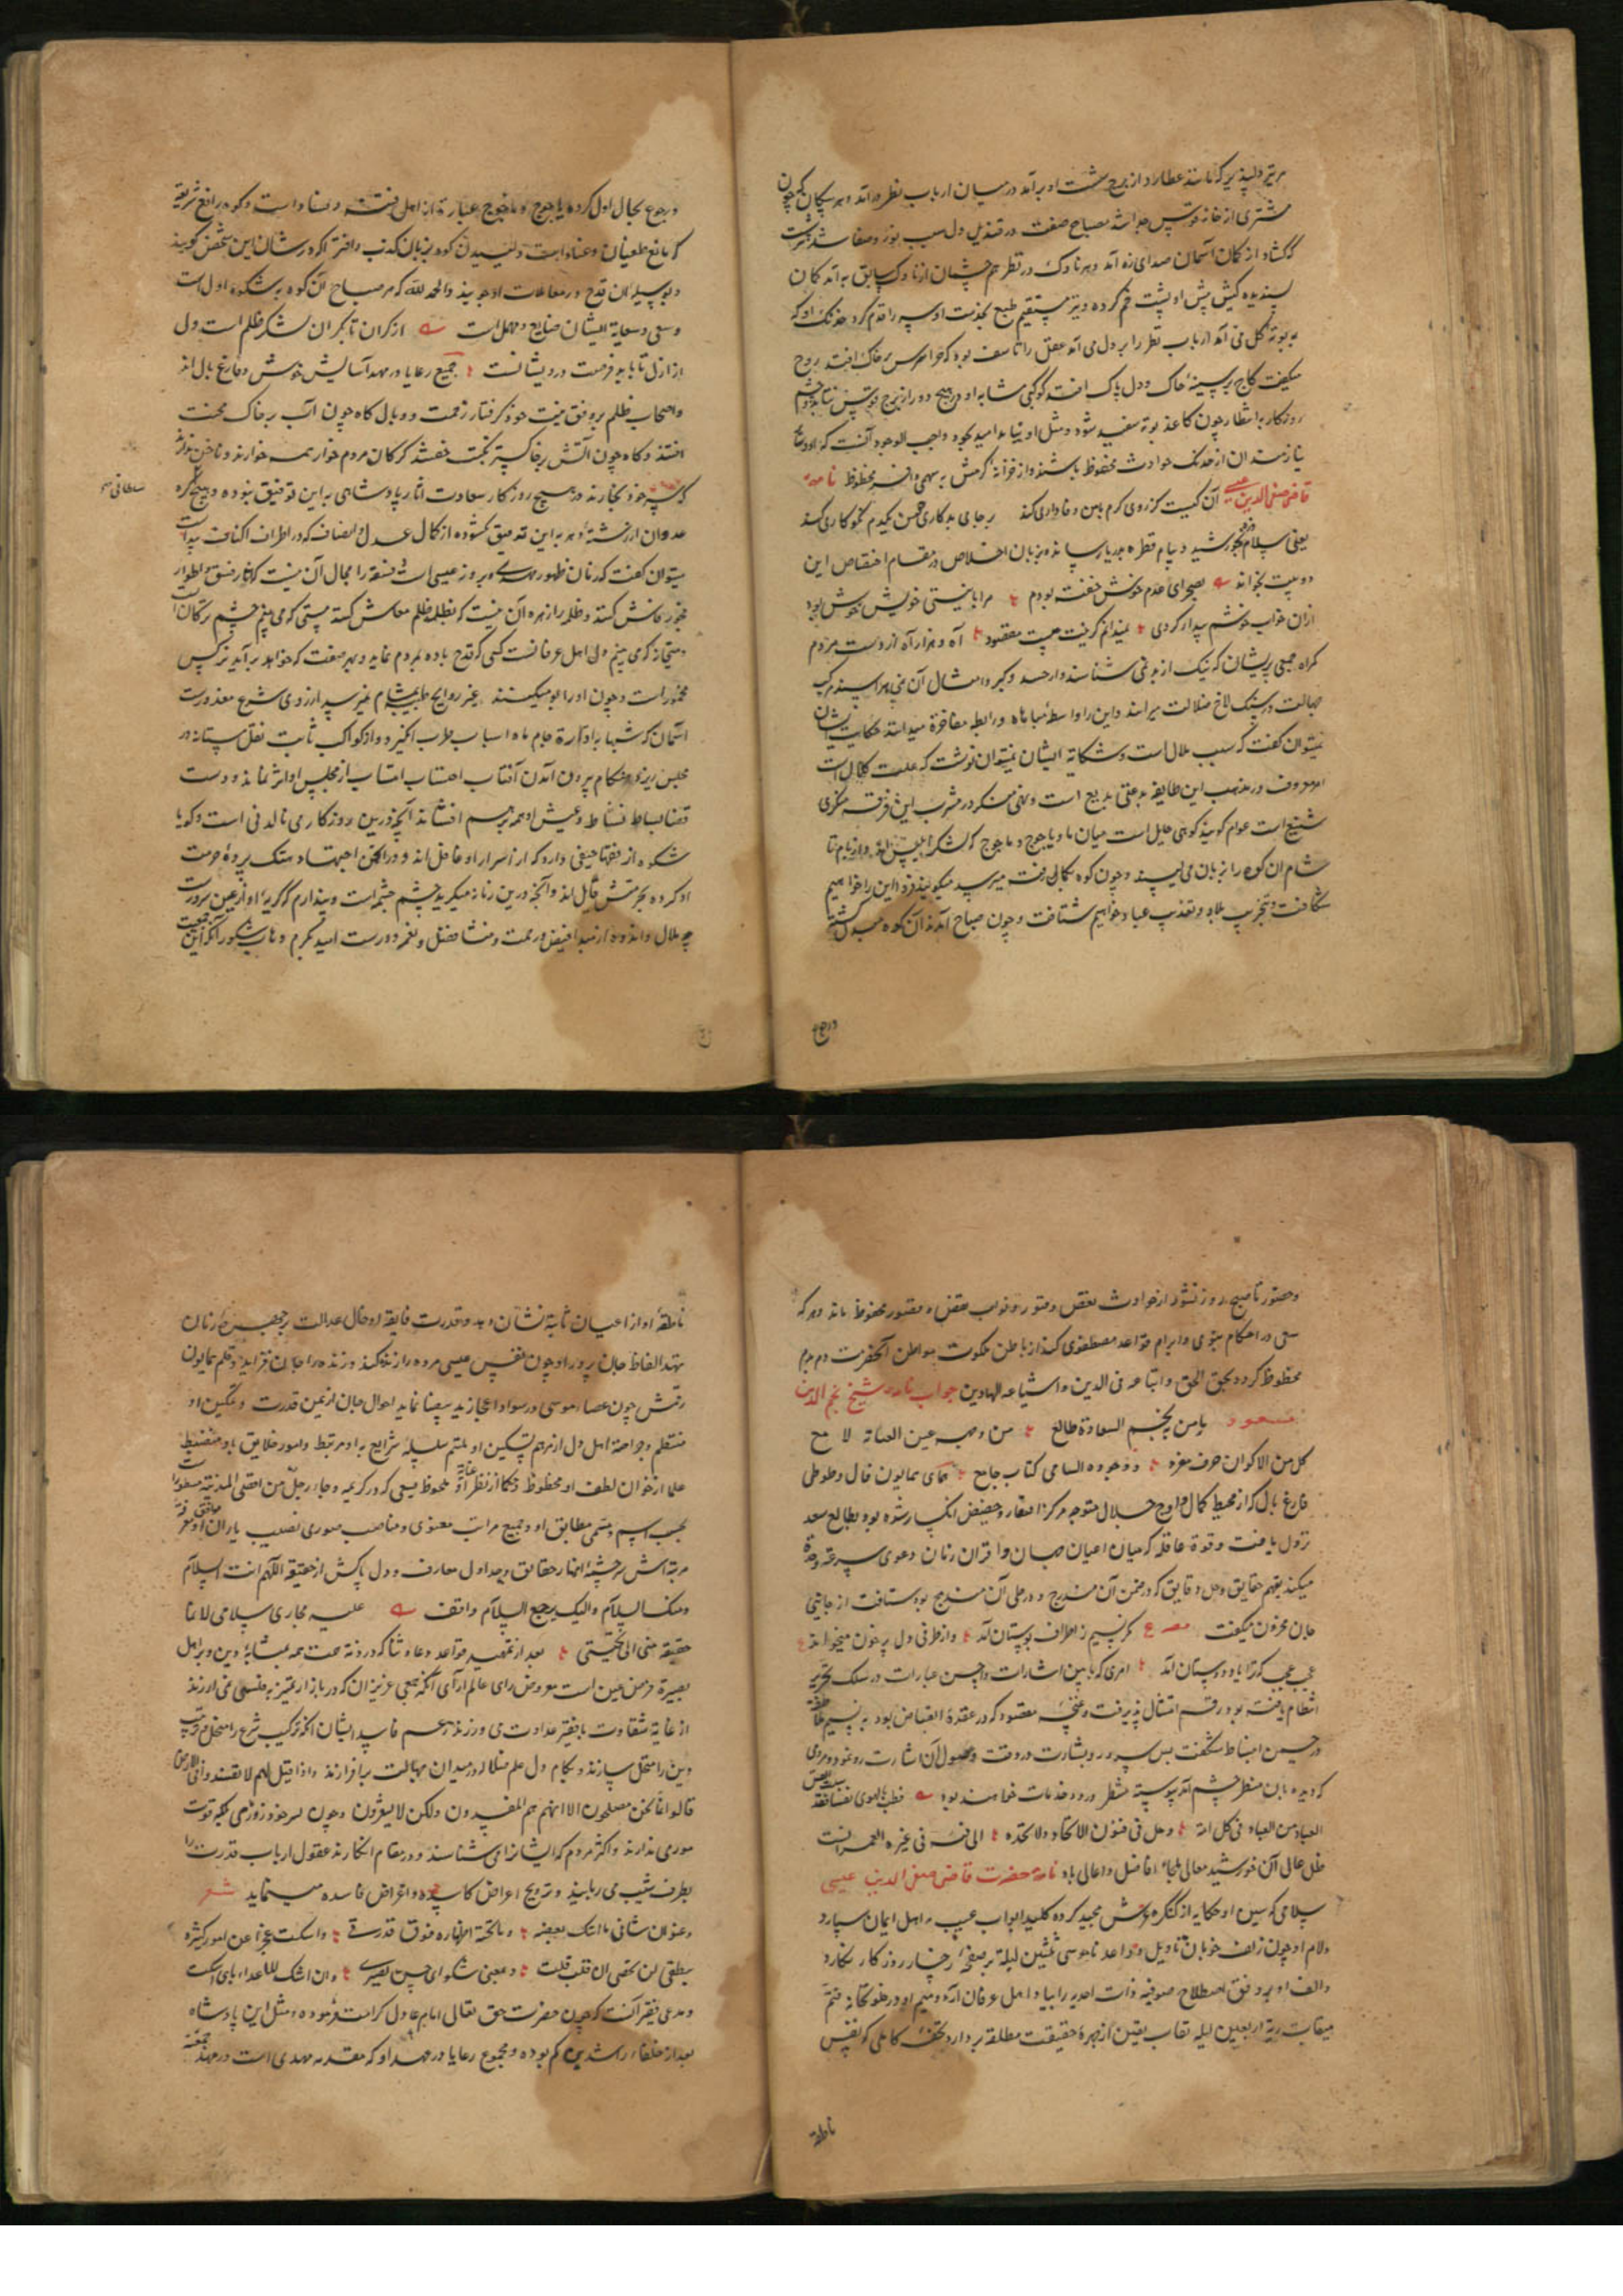 هر تیر دلپذیر که مانند عطارد از برج شست او برآمد در میان ارباب نظر درآمد و هر پیکان که چون
مشتری از خانه قوس جدا شد مصباح صفت در قندیل دل سبب نور و صفا شد
که گشاد از کمان آسمان صدای زه آمد و هر ناوک در نظر هم چشمان از ناوک سابق به آمد کمان
پسندیده کیش پیش او پشت خم کرده و تیر مستقیم طبع بخدمت او سر را قدم کرد خدنک او که
به بوته گل می آمد ارباب نظر را بر دل می آمد عقل را تاسف بود که چرا هر بر خاک افتد روح
میگفت کاج بر سینهٔ خاک و دل پاک افتد کوکبی مشابه او در هیچ دور از برج قوس نتابد و چشم
روزگار به انتظار چون کاغذ بوته سفید شود و مثل او نیابد امید بجود واجب الوجود آنست که
نیازمندان از خدنک حوادث محفوظ باشند و از خزانه کرمش به سهمی وافر محظوظ نامه
قاضی صفی الدین عیسی آن کیست کز روی کرم با من وفاداری کند بر جای بدکاری چو من یکدم نکوکاری کند
یعنی سلام بخورشید و پیام قطره بدریا رساند و بزبان اخلاص در مقام اختصاص این
دو بیت بخواند بصحرای عدم خوش خفته بودم مرا با نیستی خویش خوش بود
ازان خواب خوشم بیدار کردی نمیدانم کزینت چیست مقصود آه و هزار آه از دست مردم
گمراه جمعی پریشان که نیک از بد نمی شناسند و از حسد و کبر و امثال آن نمی هراسند مرکب
جهالت در سنگ لاخ ضلالت میرانند و این را واسطهٔ مباهاه و رابطه مفاخرة میدانند حکایت ایشان
نمیتوان گفت که سبب ملال است و شکایة ایشان نمیتوان نوشت که علت کلال است
امر معروف در مذهب این طایفه بدعتی بدیع است و نهی منکر در مشرب این فرقه منکری
شنیع است عوام گویند کوهی حایل است میان ما و یاجوج و ماجوج که لشکر ابلیس اند و از بام تا
شام آن کوه را بزبان می لیسند و چون کوه تنک رفت میرسد میگویند فردا این را خواهیم
شکافت و بتخریب بلاد و تعذیب عباد خواهیم شتافت و چون صباح آمدند آن کوه مبدل گشته
و رجوع
و رجوع بحال اول کرده یاجوج و ماجوج عبارة از اهل فتنه و فساد است و کوه رافع شریعة
که مانع طغیان و عناد است و لیسیدن کوه بزبان کذب و افترا که در شان این شخص گویند
و بوسیله آن قدح در معاملات او جویند والحمد لله که هر صباح آن کوه به شکوه اول است
و سعی و سعایة ایشان ضایع و مهمل است از کران تا بکران لشکر ظلم است ولی
از ازل تا بابد فرصت درویشانست جمیع رعایا در مهد آسایش خوش و فارغ بال اند
و اصحاب ظلم بر وفق نیت خود گرفتار زحمت و وبال گاه چون آب بر خاک محنت
افتند و گاه چون آتش بر خاکستر نکبت خفتند گرگان مردم خوار همه خوارند و ناخن ندارند
که سر خود بخارند در هیچ روزگار سعادت اثار پادشاهی به این توفیق نبوده و هیچ گره
سلطانی
عدوان از رشتهٔ دهر به این تدقیق نگشوده از کمال عدل و انصاف که در اطراف و اکناف پیداست
میتوان گفت که زمان ظهور مهدی و بروز عیسی است فسقه را مجال آن نیست که اظهار فسق و اطوار
فجور فاش کنند و ظلمه را زهره آن نیست که بظلمه ظلم معاش کنند مستی که می بینم چشم ترکان است
و میخانه که می بینم دل اهل عرفانست کسی که قدح باده بمردم نماید و بهر صفت که خواهد برآید نرگس
مخمور است و چون او را بو میکنند غیر روایح طیبه بمشام نمیرسد از روی شرع معذورست
آسمان که شبها به ادارة جام ماه اسباب طرب انگیزد و از کواکب ثابت نقل مستانه در
مجلس ریزد هنگام برون آمدن آفتاب احتساب از مجلس او اثر نماند و دست
قضا بساط نشاط و عیش او همه برهم افشاند آنچه درین روزگار می نالد نی است و گویا
شکوه از فقها حنفی دارد که از اسرار او غافل اند و در انجمن اجتهاد و هتک پردهٔ حرمت
او کرده بحرمتش قایل اند و آنچه درین زمانه میگرید چشم چشمه است و پندارم که گریهٔ او از عین سرورست
چه ملال و اندوه از مبدا فیض و رحمت و منشا فضل و نعم دورست امید بکرم وهاب شکور آنکه این جمعیت
و حضور تا صبح روز نشور از حوادث نقص و فتور و نوایب نقض و قصور محفوظ ماند و هر که
سعی در احکام نبوی و ابرام قواعد مصطفوی کند از باطن ملکوت مواطن آنحضرت دم بدم
محظوظ گردد بحق الحق و اتباعه فی الدین و اشیاعه الهادین جواب نامه شیخ نجم الدین
مسعود یا من بنجم السعادة طالع من وجهه عین العنایة لا مع
کل من الاکوان حرف مفرد و وجوده السامی کتاب جامع همای همایون فال و طوطی
فارغ بال که از محیط کمال و اوج جلال متوجه مرکز افتقار و حضیض انکسار شده بود بطالع سعد
نزول یافت و قوة عاقله که میان اعیان جهان و اقران زمان دعوی سرعة
میکند بفهم حقایق و حل دقایق که در ضمن آن مندرج و در طی آن مندمج بود شتافت از جانبی
جان محزون میگفت مصرع نسیم ز اطراف بوستان آمد و از طرفی دل پر خون میخواند
عجب عجب که ترا یاد دوستان آمد امری که باین اشارات و احسن عبارات در سلک تحریر
انتظام یافته بود رقم امتثال پذیرفت و غنچه مقصود که در عقدهٔ انقباض بود به نسیم
در حسن انبساط شکفت بس سرور و بشارت در وقت وصول آن اشارت رو نمود و مردمی
که دیده بان منظر چشم آمد پیوسته منتظر ورود خدمات خواهند بود
العباد من العباد فی کل امة و حل فی فنون الاتحاد
ظل عالی آن خورشید معالی ملجاء افاضل و اعالی باد نامه حضرت قاضی صفی الدین عیسی
سلامی که سین او حکایه از کنگره عرش مجید کرده کلید ابواب غیب به اهل ایمان سپارد
و لام او چون زلف خوبان تاویل و واعد نا موسی ثلثین لیلة بر صفحهٔ رخسار روزگار نگارد
و الف او بر وفق اصطلاح صوفیه ذات احدیه را بیابد اهل عرفان آرد و میم او در خلوتخانه فتم
میقات ربه اربعین لیله نقاب یقین از چهرهٔ حقیقت مطلقه بردارد تحف کاملی که نفس
ناطقه
ناطقهٔ او از اعیان ثابته نشان دهد و قدرت فایقه او خال عدالت بر جبین زمان
نهد الفاظ جان پرور او چون نفس عیسی مرده را زنده کند و زنده را جان فزاید و قلم همایون
رقمش چون عصاء موسی در سواد اعجاز ید بیضا نماید احوال جهان از یمن قدرت و تمکین او
منتظم و جراحة اهل دل از مرهم تسکین او ملتئم سلسلهٔ شرایع به او مرتبط و امور خلایق باو منضبط
علما از خوان لطف او محظوظ و حکما از نظر عنایة او ملحوظ سعی که در کریمه و جاء رجل من اقصی المدینة مسطورست
بحسب اسم و مسمی مطابق او و جمیع مراتب معنوی و مناصب صوری نصیب یاران موافق او
مرتبه اش سرچشمهٔ انهار حقایق و جداول معارف و دل پاکش از حقیقه اللهم انت السلام
و منک السلام و الیک یرجع السلام واقف علیه مجاری سلامی لانها
حقیقه منی الی تحیتی بعد از تمهید قواعد دعا و ثنا که در ذمهٔ همت همه بمثابهٔ دین و بر اهل
بصیرة فرض عین است معروض رای عالم آرای آنکه جمعی عزیزان که در بازار تمیز به فلسی نمی ارزند
از غایة شقاوت با فقیر عداوت می ورزند زعم فاسد ایشان آنکه ترکیب شرع را منحل و ترتیب
دین را مختل سازند و بکام دل علم ضلال در میدان جهالت برافرازند و اذا قیل لهم لا تفسدوا فی الارض
قالوا انما نحن مصلحون الا انهم هم المفسدون ولکن لا یشعرون و چون
موری ندارند و اکثر مردم که ایشان را می شناسند و در مقام انکارند عقول ارباب قدرت را
بطرف شیب می ربایند و ترویج اعراض کاسده و اغراض فاسده مینماید شعر
و عنوان شانی ما ابثک بعضه و ما تحته اظهاره فوق قدرتی و اسکت عجزا عن امور کثیرة
بنطقی لن تحصی ان قلت قلت و معنی شکوای حسن تصبری و ان اشک للاعداء ما بی اشکت
و مدعی فقیر آنست که چون حضرت حق تعالی امام عادل کرامت فرموده و مثل این پادشاه
بعد از خلفاء راشدین کم بوده و مجموع رعایا در عهد او که مقدمه مهدی است در مهد